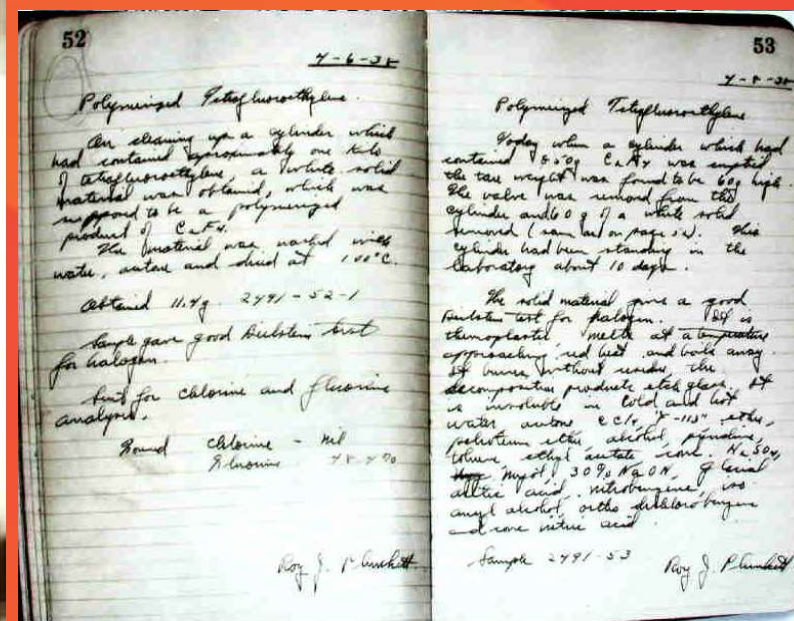 52
4-6-38
Polymerized Tetrafluoroethylene.
On cleaning up a cylinder which
had contained aproximately one kilo
of tetrafluoroethylene, a white solid
material was obtained, which was
supposed to be a polymerized
product of C2F4.
The material was washed with
water, acetone and dried at 100°C.
Obtained 11.4g. 2491-52-1
Sample gave good Beilstein test
for halogen.
Sent for chlorine and fluorine
analysis.
Found Chlorine - nil
Fluorine 48.4%
Roy J. Plunkett
53
4-8-38
Polymerized Tetrafluoroethylene
Today when a cylinder which had
contained C2F4 was emptied
the tare weight was found to be 60g high.
The valve was removed from the
cylinder and 60 g of a white solid
removed (same as on page 52). This
cylinder had been standing in the
laboratory about 10 days.
The solid material gave a good
Beilstein test for halogen. It is
thermoplastic, melts at a temperature
approaching red heat and boils away.
It burns without residue, the
decomposition products etch glass. It
is insoluble in cold and hot
water, acetone, CCl4, "F-113", ether,
petroleum ether, alcohol, pyridine,
toluene, ethyl acetate, conc.
30% NaOH, glacial
acetic acid, nitrobenzene, iso
amyl alcohol, ortho dichlorobenzene
and conc nitric acid.
Sample 2491-53
Roy J. Plunkett